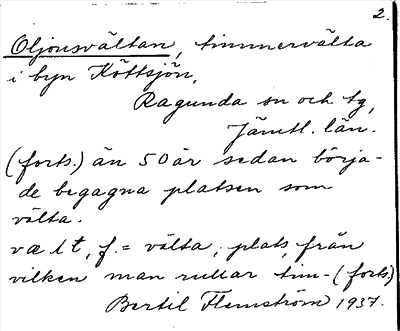 2.
Oljonsvältan, timmervälta
i byn Köttsjön,
Ragunda sn och tg,
Jämtl. län.
(forts.) än 50 år sedan börja-
de begagna platsen som
välta.
vælt, f. = välta, plats, från
vilken man rullar tim-(forts.)
Bertil Flemström 1937.